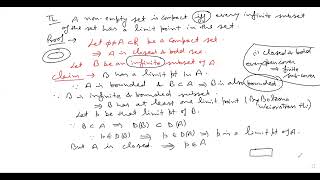 Th. A non-empty set is compact iff every infinite subset
of the set has a limit point in the set.
Proof → Let ϕ≠A ⊂ R be a compact set
⇒ A is closed & bdd set.
Let B be an infinite subset of A
claim → B has a limit pt in A.
∵ A is bounded & B ⊂ A ⇒ B is also bounded
∵ B is infinite & bounded subset.
⇒ B has at least one limit point (By Bolzano
Weierstrass th.)
Let p be that limit pt of B.
∵ B ⊂ A ⇒ D(B) ⊂ D(A)
∵ p ∈ D(B) ⇒ p ∈ D(A) ⇒ p is a limit pt of A.
But A is closed. ⇒ p ∈ A
(i) closed & bdd
every open
cover → finite
sub-cover